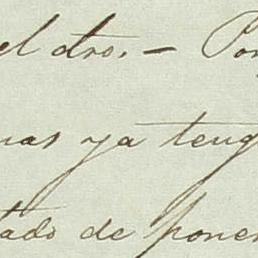 el dro. — Por
uas ya teng
tado de poner